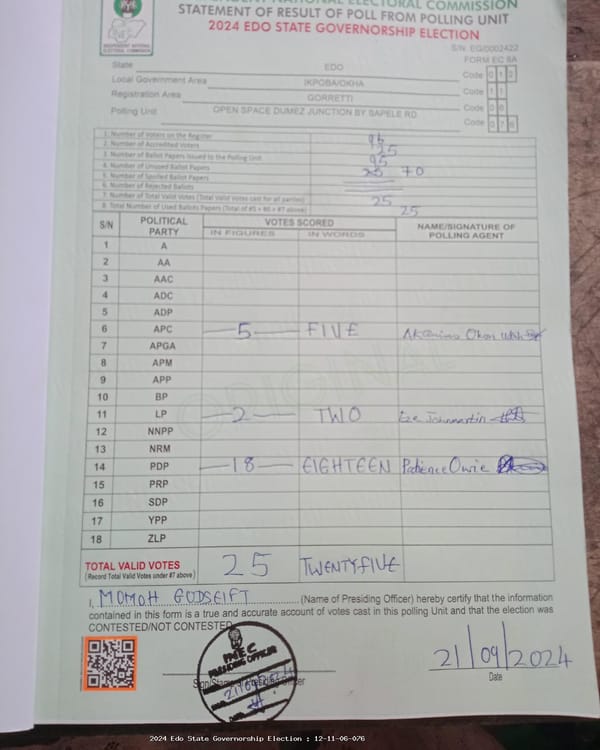 INDEPENDENT NATIONAL ELECTORAL COMMISSION
STATEMENT OF RESULT OF POLL FROM POLLING UNIT
2024 EDO STATE GOVERNORSHIP ELECTION
S/N: EG/0002422
FORM EC 8A
State EDO Code 0 1 2
Local Government Area IKPOBA/OKHA Code 1 1
Registration Area GORRETTI Code 0 6
Polling Unit OPEN SPACE DUMEZ JUNCTION BY SAPELE RD Code 0 7 6
1. Number of Voters on the Register 95
2. Number of Accredited Voters 25
3. Number of Ballot Papers Issued to the Polling Unit 95
4. Number of Unused Ballot Papers 70
5. Number of Spoiled Ballot Papers
6. Number of Rejected Ballots
7. Number of Total Valid Votes (Total Valid votes cast for all parties) 25
8. Total Number of Used Ballots Papers (Total of #5 + #6 + #7 above) 25
S/N POLITICAL PARTY VOTES SCORED NAME/SIGNATURE OF POLLING AGENT
IN FIGURES IN WORDS
1 A
2 AA
3 AAC
4 ADC
5 ADP
6 APC 5 FIVE
7 APGA
8 APM
9 APP
10 BP
11 LP 2 TWO
12 NNPP
13 NRM
14 PDP 18 EIGHTEEN Patience Owie
15 PRP
16 SDP
17 YPP
18 ZLP
TOTAL VALID VOTES 25 TWENTYFIVE
(Record Total Valid Votes under #7 above)
I, MOMOH GODSGIFT (Name of Presiding Officer) hereby certify that the information
contained in this form is a true and accurate account of votes cast in this polling Unit and that the election was
CONTESTED/NOT CONTESTED
INEC
PRESIDING OFFICER
21/09/2024
Date
2024 Edo State Governorship Election : 12-11-06-076